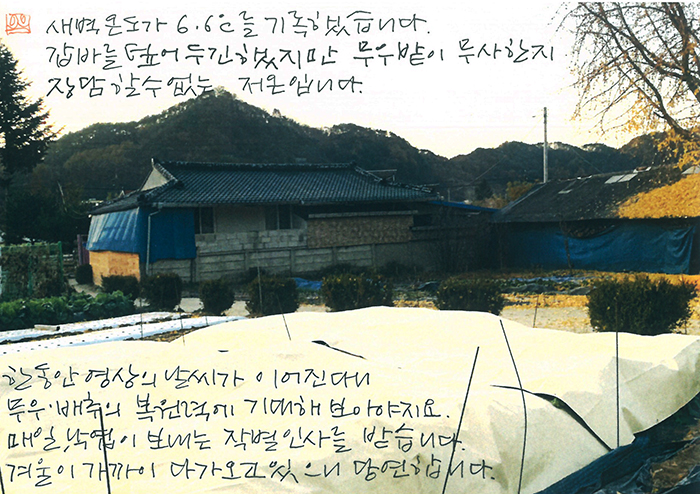 새벽 온도가 6.6℃를 기록했습니다.
갑바를 덮어두긴했지만 무우밭이 무사한지
장담할수없는 저온입니다.
한동안 영상의 날씨가 이어진다니
무우·배추의 복원력에 기대해보아야지요.
매일, 낙엽이 보내는 작별인사를 받습니다.
겨울이 가까이 다가오고있으니 당연합니다.